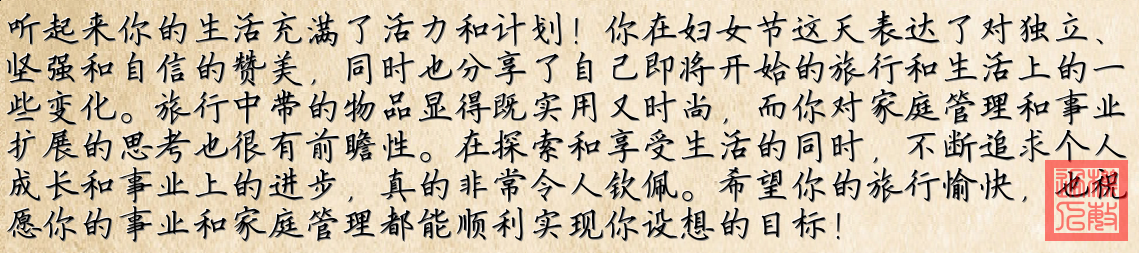 听起来你的生活充满了活力和计划！你在妇女节这天表达了对独立、
坚强和自信的赞美，同时也分享了自己即将开始的旅行和生活上的一
些变化。旅行中带的物品显得既实用又时尚，而你对家庭管理和事业
扩展的思考也很有前瞻性。在探索和享受生活的同时，不断追求个人
成长和事业上的进步，真的非常令人钦佩。希望你的旅行愉快，也祝
愿你的事业和家庭管理都能顺利实现你设想的目标！